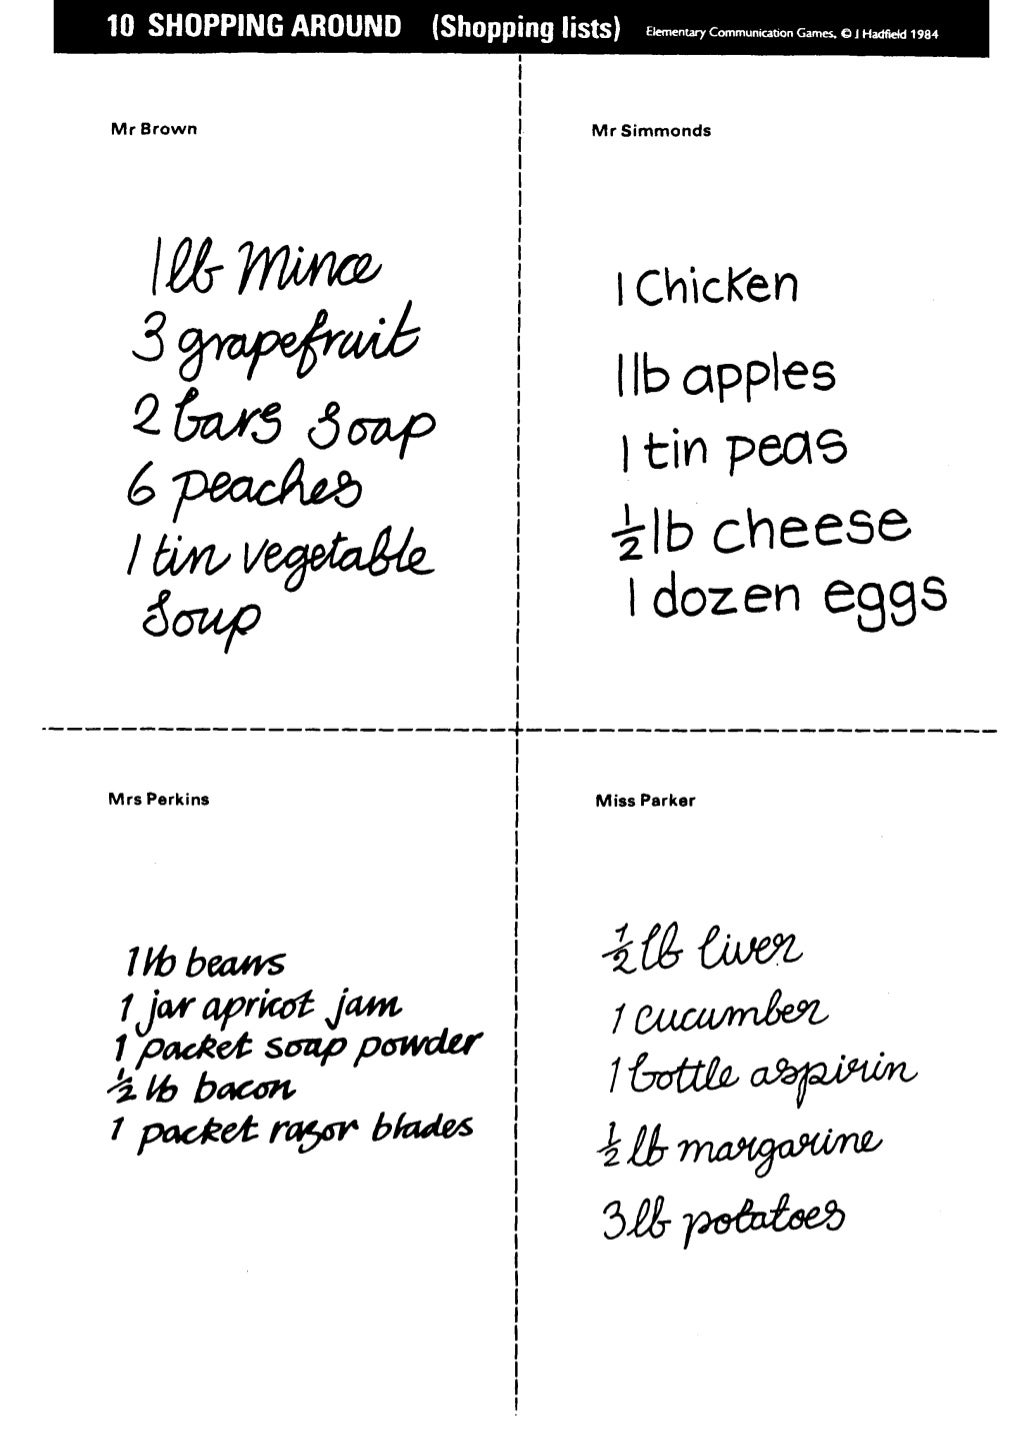 10 SHOPPING AROUND (Shopping lists) Elementary Communication Games, © J Hadfield 1984
Mr Brown
1 lb Mince
3 grapefruit
2 bars soap
6 peaches
1 tin vegetable
soup
Mr Simmonds
1 Chicken
1 lb apples
1 tin peas
½ lb cheese
1 dozen eggs
Mrs Perkins
1 lb beans
1 jar apricot jam
1 packet soap powder
½ lb bacon
1 packet razor blades
Miss Parker
½ lb liver
1 cucumber
1 bottle aspirin
½ lb margarine
3 lb potatoes